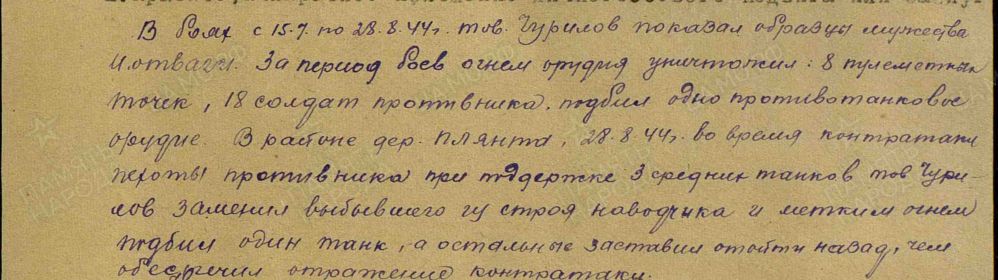 В боях с 15.7. по 28.8.44г. тов. Чурилов показал образцы мужества
и отваги. За период боев огнем орудия уничтожил: 8 пулеметных
точек, 18 солдат противника, подбил одно противотанковое
орудие. В районе дер. Плянты, 28.8.44г. во время контратаки
пехоты противника при поддержке 3 средних танков тов Чури-
лов заменил выбывшего из строя наводчика и метким огнем
подбил один танк, а остальные заставил отойти назад, чем
обеспечил отражение контратаки.